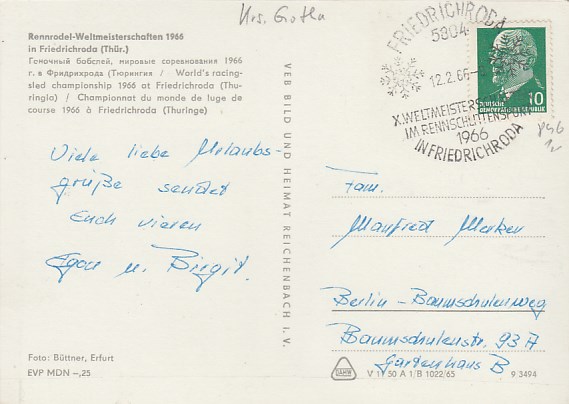 Krs. Gotha
Rennrodel-Weltmeisterschaften 1966
in Friedrichroda (Thür.)
Гемочный бобслей, мировые соревнования 1966
г. в Фридрихрода (Тюрингия / World's racing-
sled championship 1966 at Friedrichroda (Thu-
ringia) / Championnat du monde de luge de
course 1966 à Friedrichroda (Thuringe)
Viele liebe Urlaubs-
grüße sendet
Euch vieren
Egon u. Birgit.
Foto: Büttner, Erfurt
EVP MDN –,25
VEB BILD UND HEIMAT REICHENBACH I. V.
FRIEDRICHRODA
5804
12.2.66
X.WELTMEISTERSCH
IM RENNSCHLITTENSPORT
1966
IN FRIEDRICHRODA
DEUTSCHE
DEMOKRATISCHE REPUBLIK
10
Fam.
Manfred Merken
Berlin - Baumschulenweg
Baumschulenstr. 93 A
Gartenhaus B
V 11 50 A 1/B 1022/65
9 3494